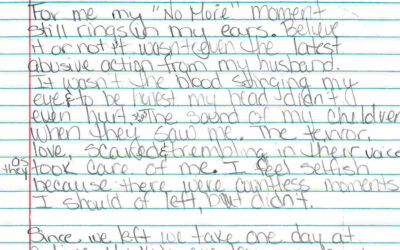 For me my "No More" moment
still rings in my ears. Believe
it or not it wasn't even the latest
abusive action from my husband.
It wasn't the blood stinging my
eye & to be honest my head didn't
even hurt. The sound of my children
when they saw me. The terror,
love, scared & trembling in their voice
as they took care of me. I feel selfish
because there were countless moments
I should of left, but didn't.
Since we left we take one day at